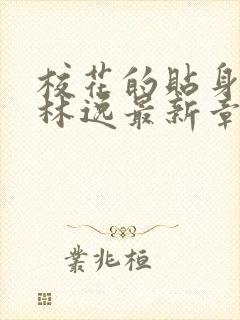 校花的貼身
林逸最新章
業兆桓